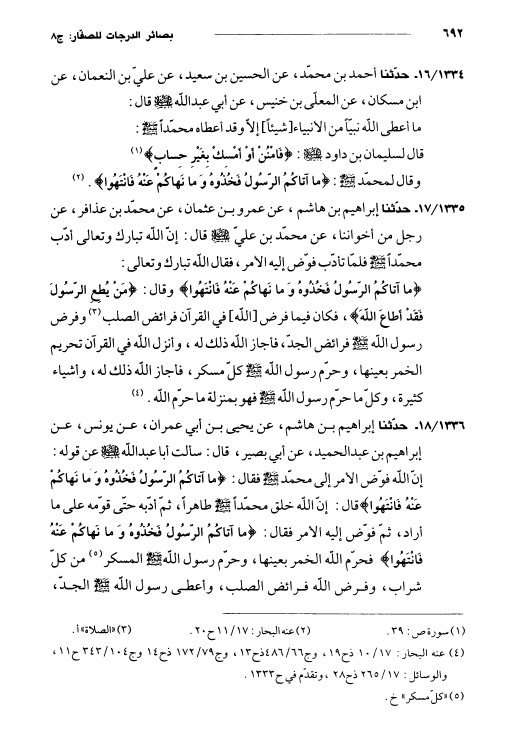 ٦٩٢ بصائر الدرجات للصفّار: ج٨
١٦/١٣٣٤. حدّثنا أحمد بن محمّد، عن الحسين بن سعيد، عن عليّ بن النعمان، عن
ابن مسكان، عن المعلّى بن خنيس، عن أبي عبدالله ﷺ قال:
ما أعطى الله نبيّاً من الانبياء [شيئاً] إلاّ وقد أعطاه محمّداً ﷺ:
قال لسليمان بن داود ﷺ: ﴿فَامْنُنْ أَوْ أَمْسِكْ بِغَيْرِ حِسابٍ﴾ (١)
وقال لمحمّد ﷺ: ﴿ما آتاكُمُ الرّسُولُ فَخُذُوهُ وَ ما نَهاكُمْ عَنْهُ فَانْتَهُوا﴾. (٢)
١٧/١٣٣٥. حدّثنا إبراهيم بن هاشم، عن عمرو بـن عثمان، عن محمّد بن عذافر، عن
رجل من أخواننا، عن محمّد بن عليّ ﷺ قال: إنّ الله تبارك وتعالى أدّب
محمّداً ﷺ فلمّا تأدّب فوّض إليه الأمر، فقال الله تبارك وتعالى:
﴿ما آتاكُمُ الرّسُولُ فَخُذُوهُ وَ ما نَهاكُمْ عَنْهُ فَانْتَهُوا﴾ وقال: ﴿مَنْ يُطِعِ الرّسُولَ
فَقَدْ أَطاعَ اللهَ﴾، فكان فيما فرض [الله] في القرآن فرائض الصلب (٣) وفرض
رسول الله ﷺ فرائض الجدّ، فأجاز الله ذلك له، وأنزل الله في القرآن تحريم
الخمر بعينها، وحرّم رسول الله ﷺ كلّ مسكر، فأجاز الله ذلك له، وأشياء
كثيرة، وكلّ ما حرّم رسول الله ﷺ فهو بمنزلة ما حرّم الله. (٤)
١٨/١٣٣٦. حدّثنا إبراهيم بـن هاشم، عن يحيى بن أبي عمران، عن يونس، عـن
إبراهيم بن عبدالحميد، عن أبي بصير، قال: سألت أبا عبدالله ﷺ عن قوله:
إنّ الله فوّض الأمر إلى محمّد ﷺ فقال: ﴿ما آتاكُمُ الرّسُولُ فَخُذُوهُ وَ ما نَهاكُمْ
عَنْهُ فَانْتَهُوا﴾ قال: إنّ الله خلق محمّداً ﷺ طاهراً، ثمّ أدّبه حتّى قوّمه على ما
أراد، ثمّ فوّض إليه الأمر فقال: ﴿ما آتاكُمُ الرّسُولُ فَخُذُوهُ وَ ما نَهاكُمْ عَنْهُ
فَانْتَهُوا﴾ فحرّم الله الخمر بعينها، وحرّم رسول الله ﷺ المسكر (٥) من كلّ
شراب، وفـرض الله فـرائض الصلب، وأعطـى رسول الله ﷺ الجـدّ،
(١) سورة ص: ٣٩. (٢) عنه البحار: ١١/١٧ ح٢٠. (٣) «الصلاة» أ.
(٤) عنه البحار: ١٠/١٧ ذح١٩، وج٤٨٦/٦٦ ذح١٣، وج١٧٢/٧٩ ذح١٤ وج٣٤٣/١٠٤ ح١١،
والوسائل: ٢٦٥/١٧ ذح٢٨، وتقدّم في ح١٣٣٣.
(٥) «كلّ مسكر» خ.